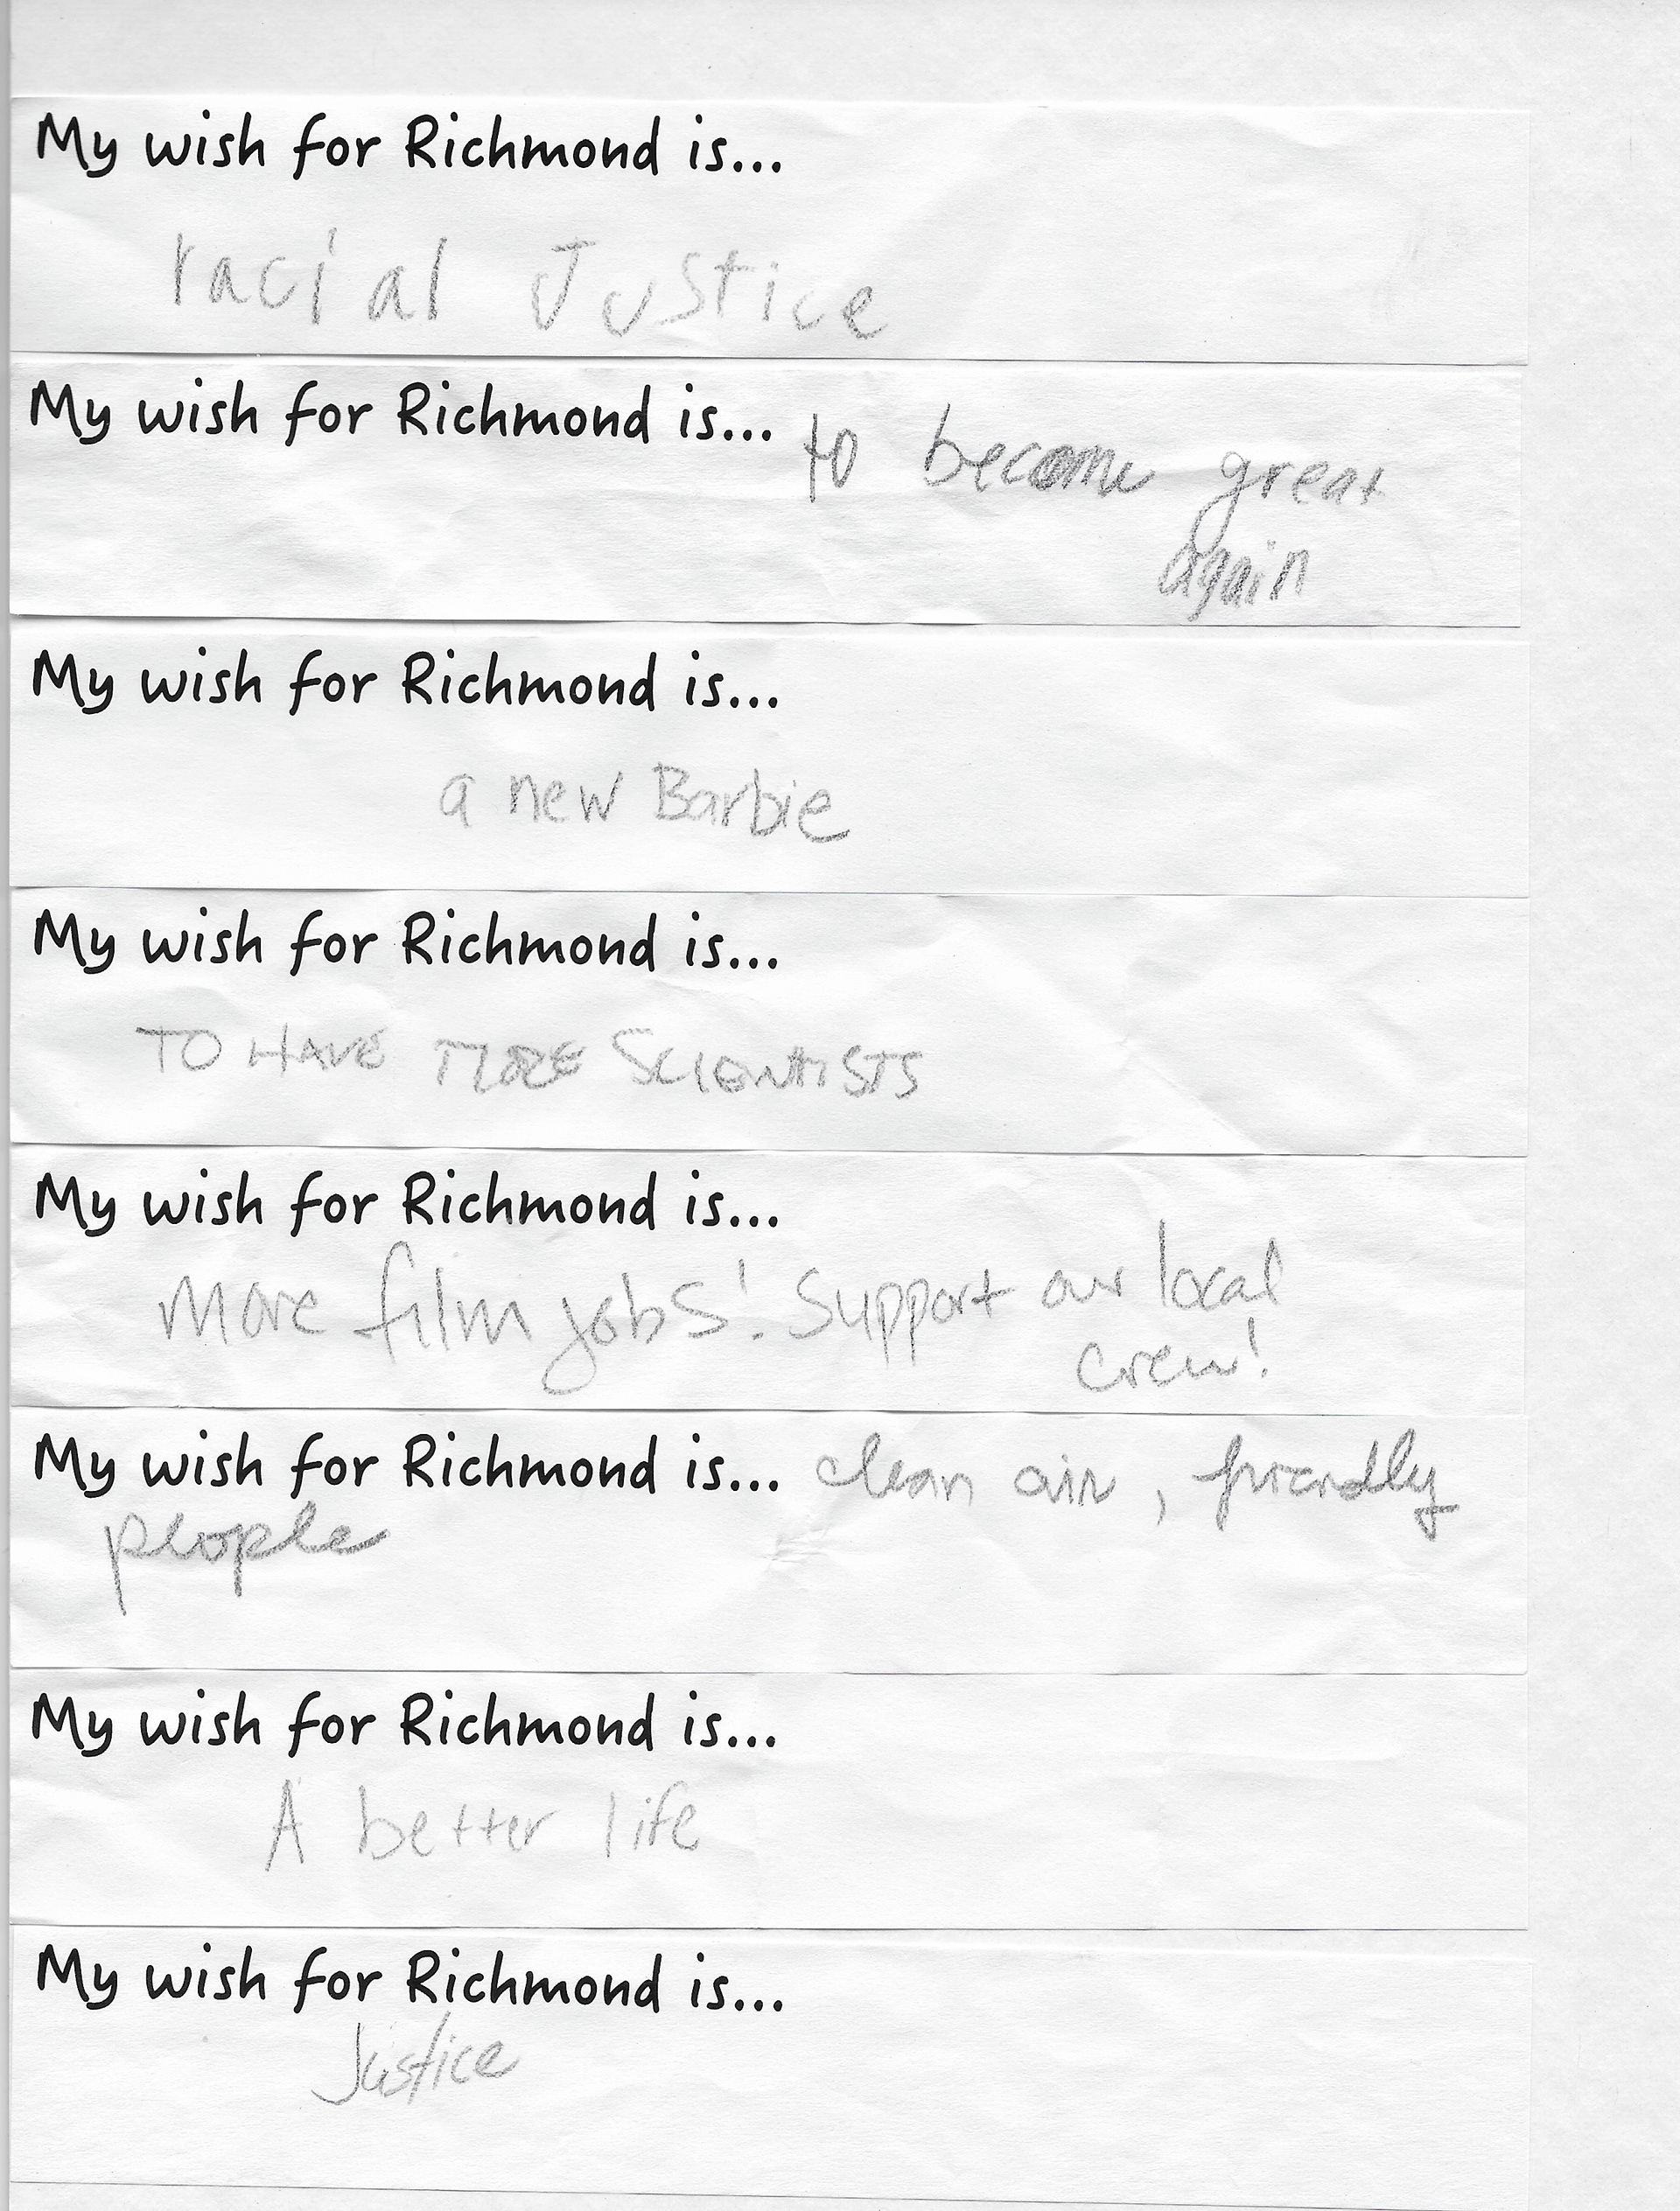 My wish for Richmond is...
racial Justice
My wish for Richmond is... to become great
again
My wish for Richmond is...
a new Barbie
My wish for Richmond is...
TO HAVE MORE SCIENTISTS
My wish for Richmond is...
More film jobs! Support our local
crew!
My wish for Richmond is... clean air, friendly
people
My wish for Richmond is...
A better life
My wish for Richmond is...
Justice